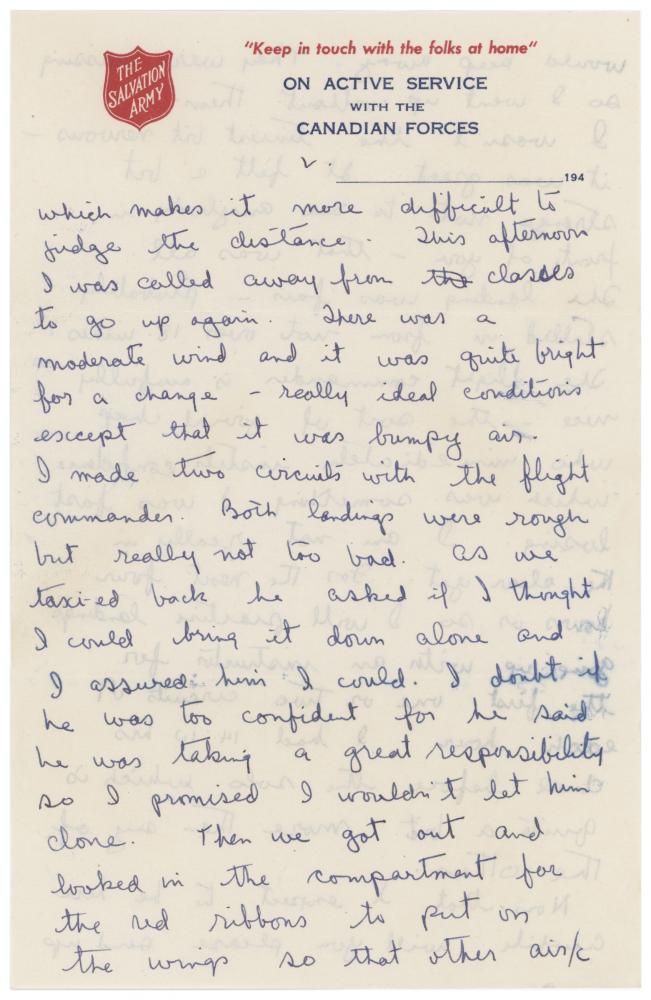 THE
SALVATION
ARMY
"Keep in touch with the folks at home"
ON ACTIVE SERVICE
WITH THE
CANADIAN FORCES
V
194
which makes it more difficult to
judge the distance. This afternoon
I was called away from the classes
to go up again. There was a
moderate wind and it was quite bright
for a change - really ideal conditions
except that it was bumpy air.
I made two circuits with the flight
commander. Both landings were rough
but really not too bad. As we
taxi-ed back he asked if I thought
I could bring it down alone and
I assured him I could. I doubt if
he was too confident for he said
he was taking a great responsibility
so I promised I wouldn't let him
clone. Then we got out and
looked in the compartment for
the red ribbons to put on
the wings so that other air/c